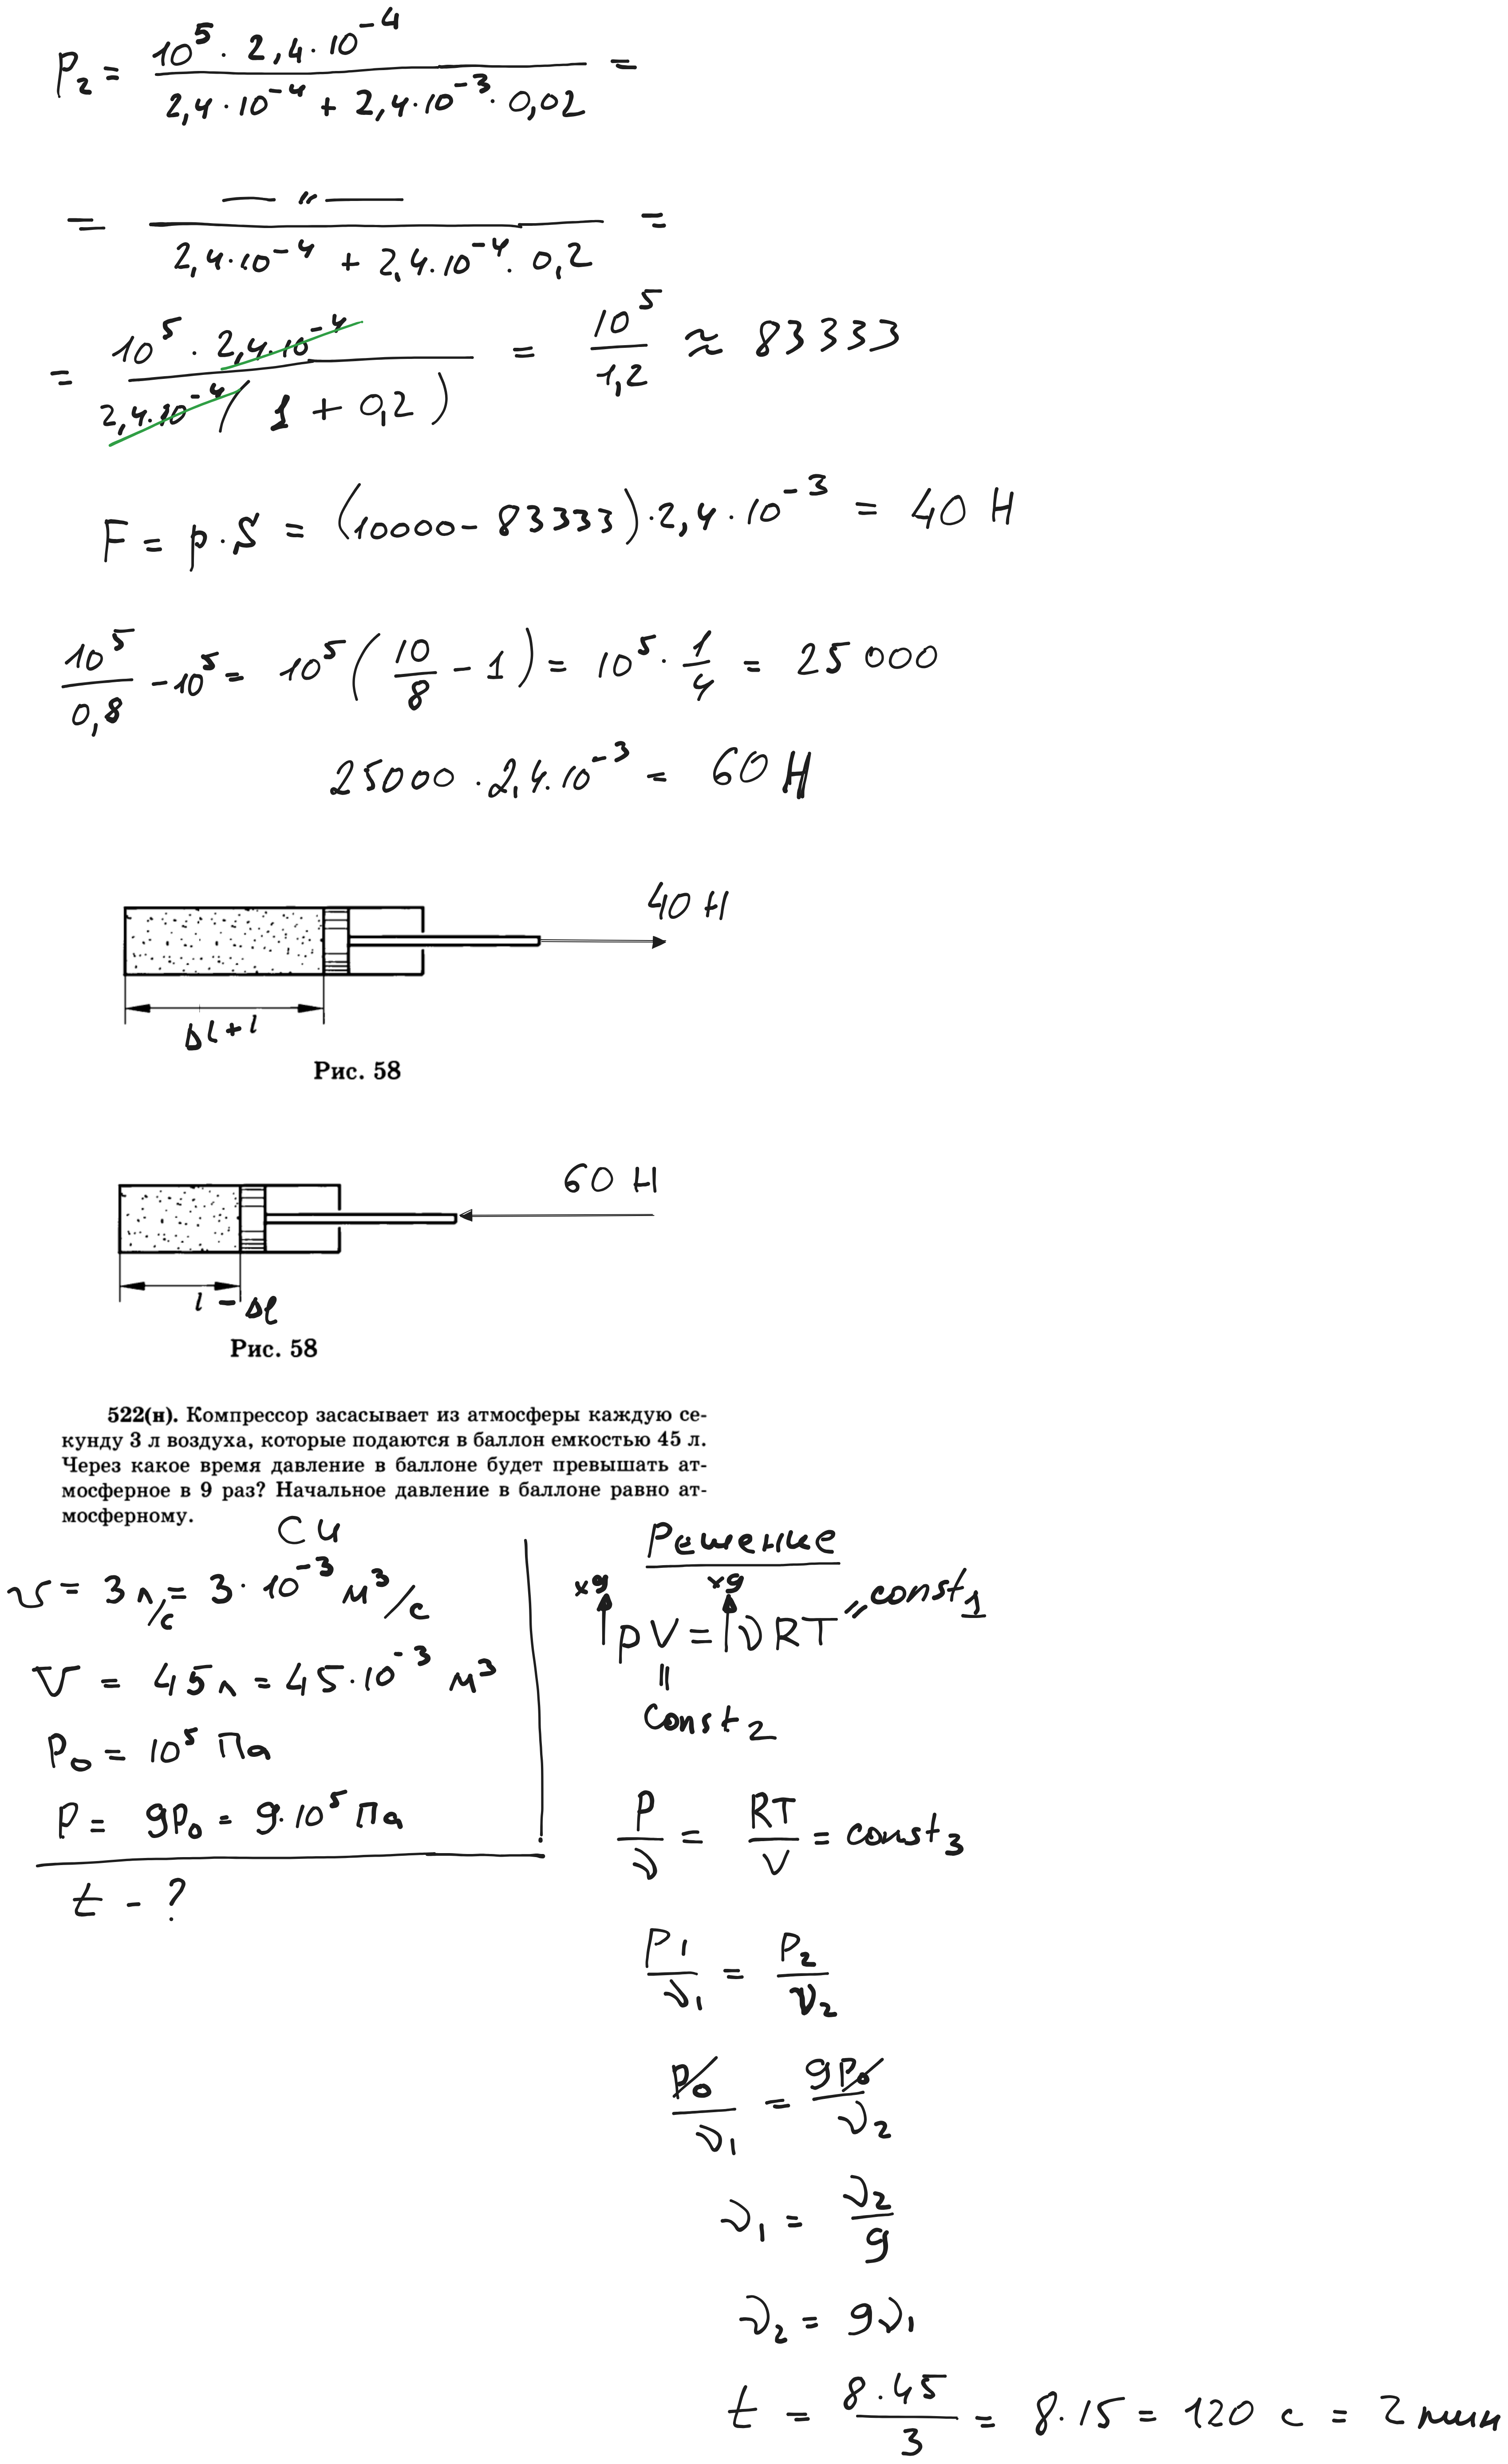 P₂ = (10⁵ · 2,4 · 10⁻⁴) / (2,4 · 10⁻⁴ + 2,4 · 10⁻³ · 0,02) =
= (— " —) / (2,4 · 10⁻⁴ + 2,4 · 10⁻⁴ · 0,2) =
= (10⁵ · 2,4 · 10⁻⁴) / (2,4 · 10⁻⁴ (1 + 0,2)) = 10⁵ / 1,2 ≈ 83333
F = p · S = (10000 - 83333) · 2,4 · 10⁻³ = 40 Н
10⁵ / 0,8 - 10⁵ = 10⁵ (10/8 - 1) = 10⁵ · 1/4 = 25000
25000 · 2,4 · 10⁻³ = 60 Н
40 Н
Δl + l
Рис. 58
60 Н
l - Δl
Рис. 58
522(н). Компрессор засасывает из атмосферы каждую се-
кунду 3 л воздуха, которые подаются в баллон емкостью 45 л.
Через какое время давление в баллоне будет превышать ат-
мосферное в 9 раз? Начальное давление в баллоне равно ат-
мосферному.
СИ
v = 3 л/с = 3 · 10⁻³ м³/с
V = 45 л = 45 · 10⁻³ м³
P₀ = 10⁵ Па
P = 9P₀ = 9 · 10⁵ Па
t - ?
Решение
×9 ×9
↑pV = ↑νRT = const₁
=
const₂
P/ν = RT/V = const₃
P₁/ν₁ = P₂/ν₂
P₀/ν₁ = 9P₀/ν₂
ν₁ = ν₂/9
ν₂ = 9ν₁
t = (8 · 45)/3 = 8 · 15 = 120 с = 2 мин